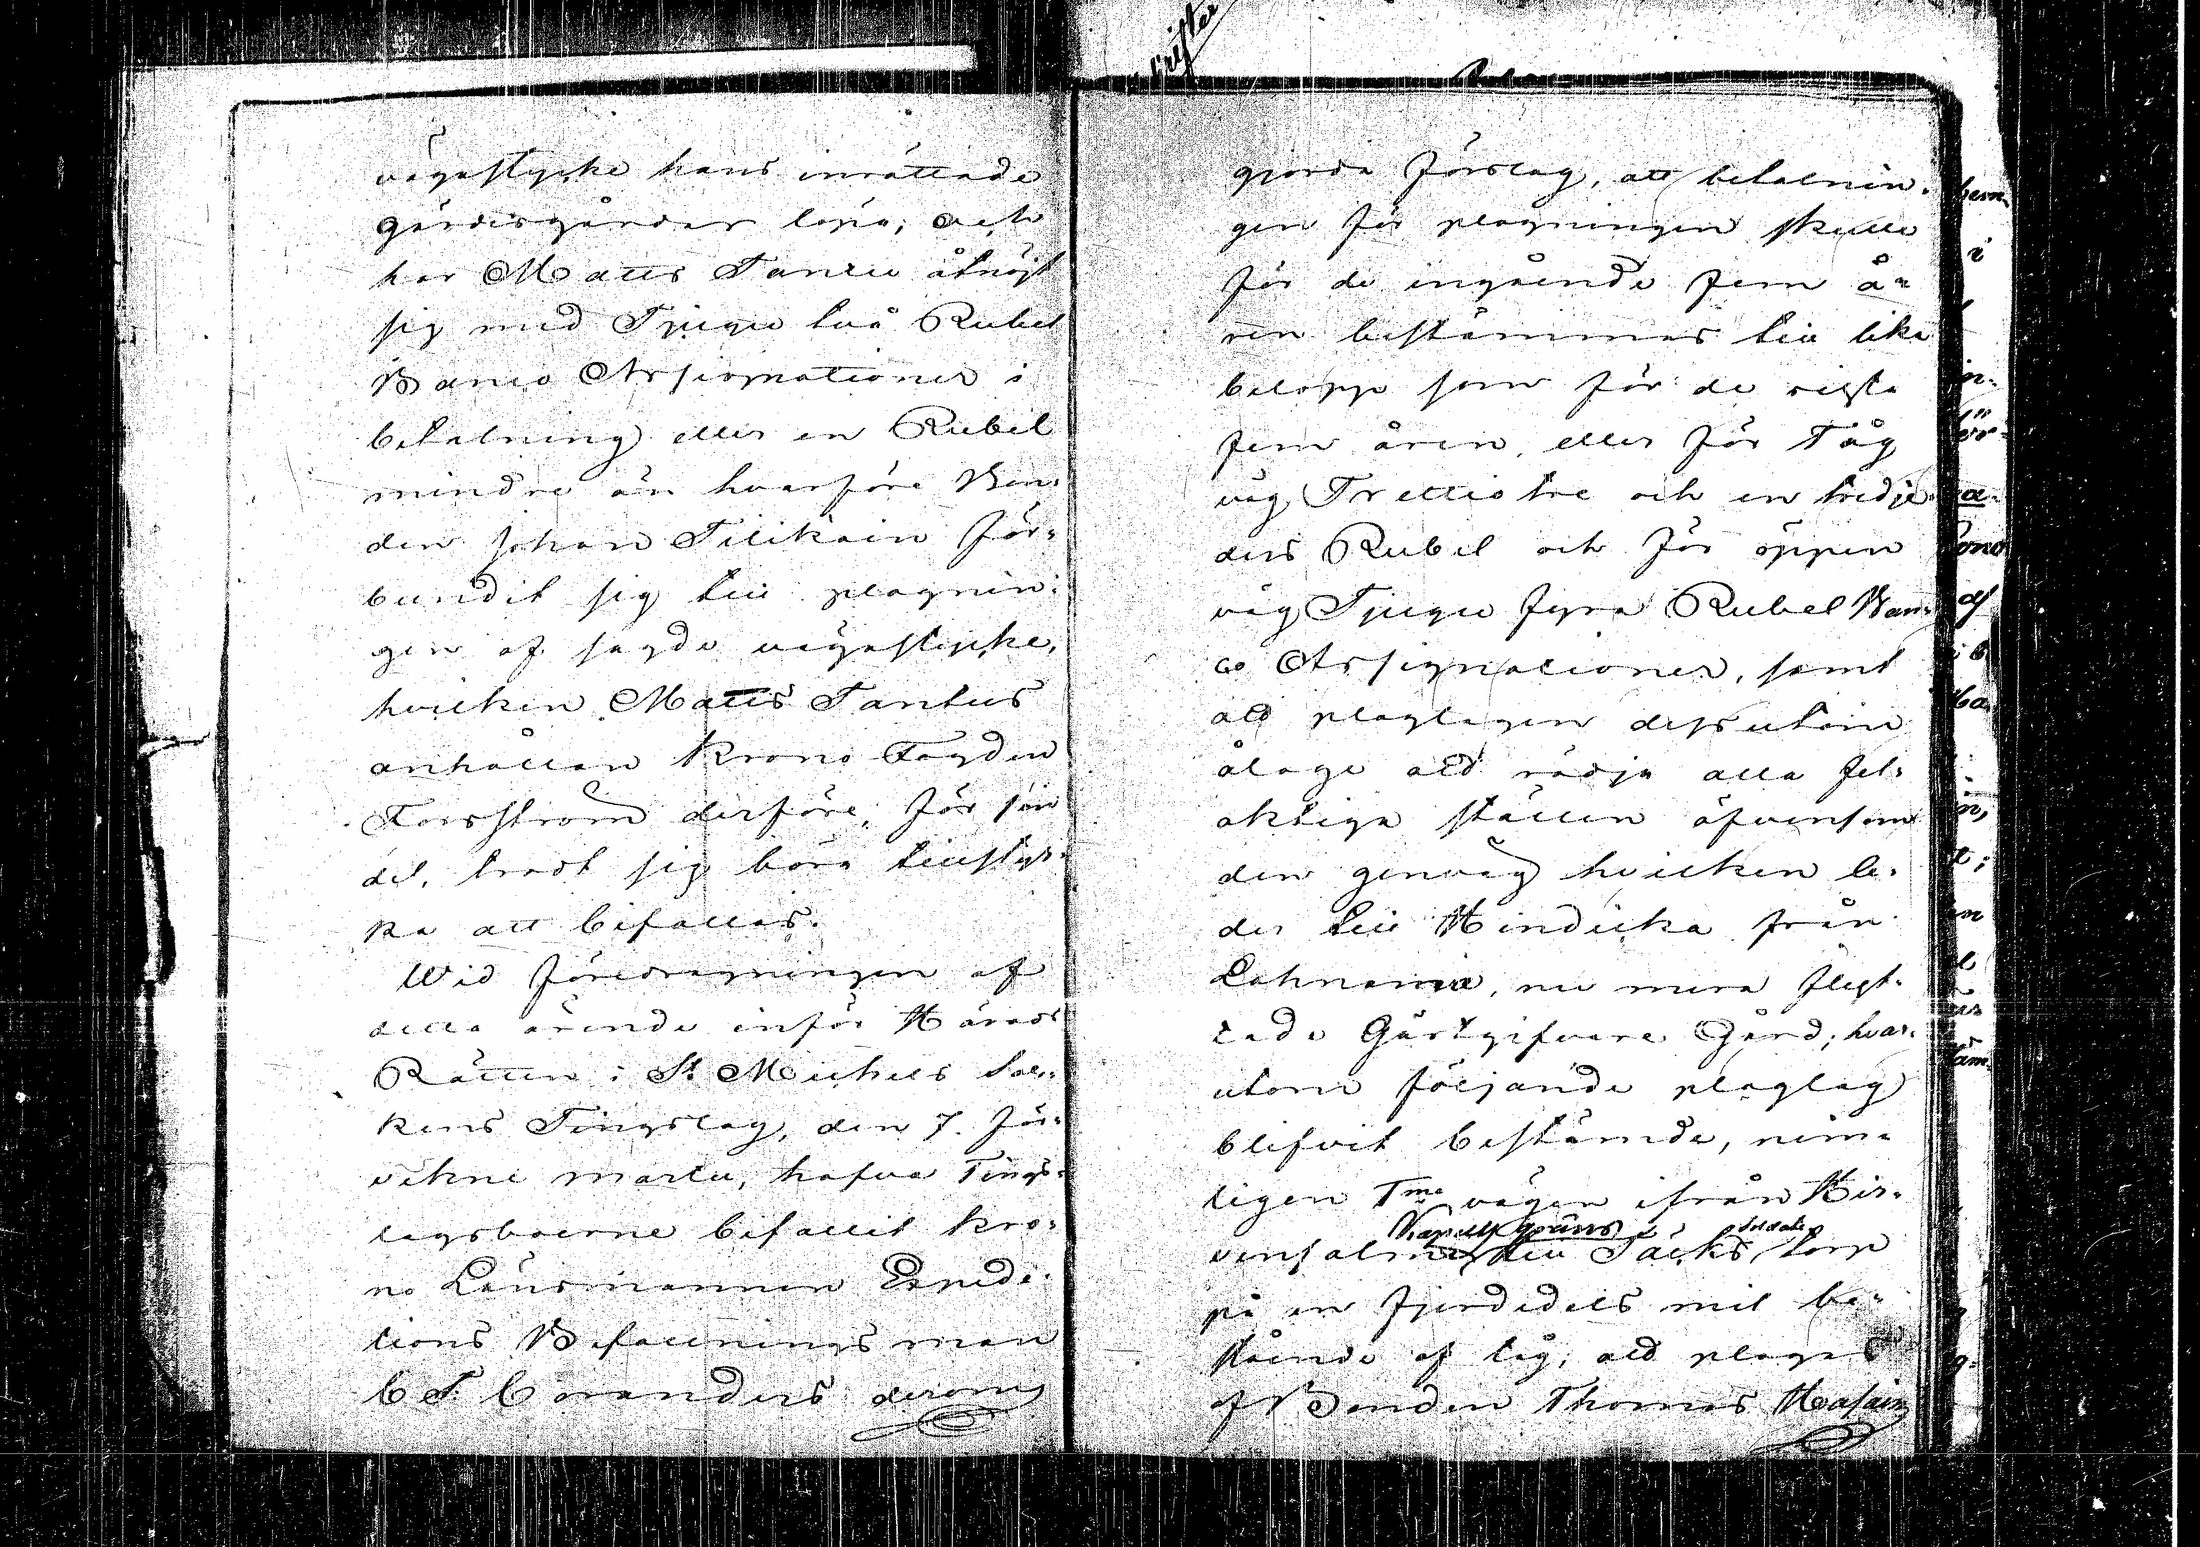 vägastycke hans inrättade
gärdesgårdar löpa; och
har Matts Tantu åtnöjt
sig med Tjugu två Rubel
Banco Assignationer i
betalning eller en Rubel
mindre än hvarföre Bon-
den Johan Tilikain för-
bundit sig till plognin-
gen af sagde vägastycke,
hvilken Matts Tantus
anhållan Krono Fogden
Forsström derföre, för sin
del, trodt sig böra tillstyr-
ka att bifallas.
Wid föredragningen af
detta ärende inför Härads
Rätten i St Michels Sok-
kens Tingslag, den 7. för-
vekne martii, hafva Tings-
lagsboerne bifallit Kro-
no Länsmannen Expedi-
tions Befallningsman
C F Coranders derom
gjorda förslag, att betalnin-
gen för plogningen skulle
för de ingående fem å-
ren bestämmas till lika
belopp som för de sista
fem åren, eller för Tåg
väg Trettiotre och en tredje-
dels Rubel och för öppen
väg Tjugu fyra Rubel Ban-
co Assignationer, samt
att ploglagen dessutom
ålage att rödja alla fel-
aktiga ställen äfvensom
den genväg hvilken le-
der till Hindicka från
Lahnaniemi, nu mera flyt-
tade Gästgifvare Gård; hvar-
utom följande ploglag
blifvit bestämde, nem-
ligen T<sup>me</sup> vägen ifrån Hir-
Kapells gräns soldats
vensalmi till Täcks torp
på en fjerdedels mil be-
stående af tåg, att plogas
af Bonden Thomas